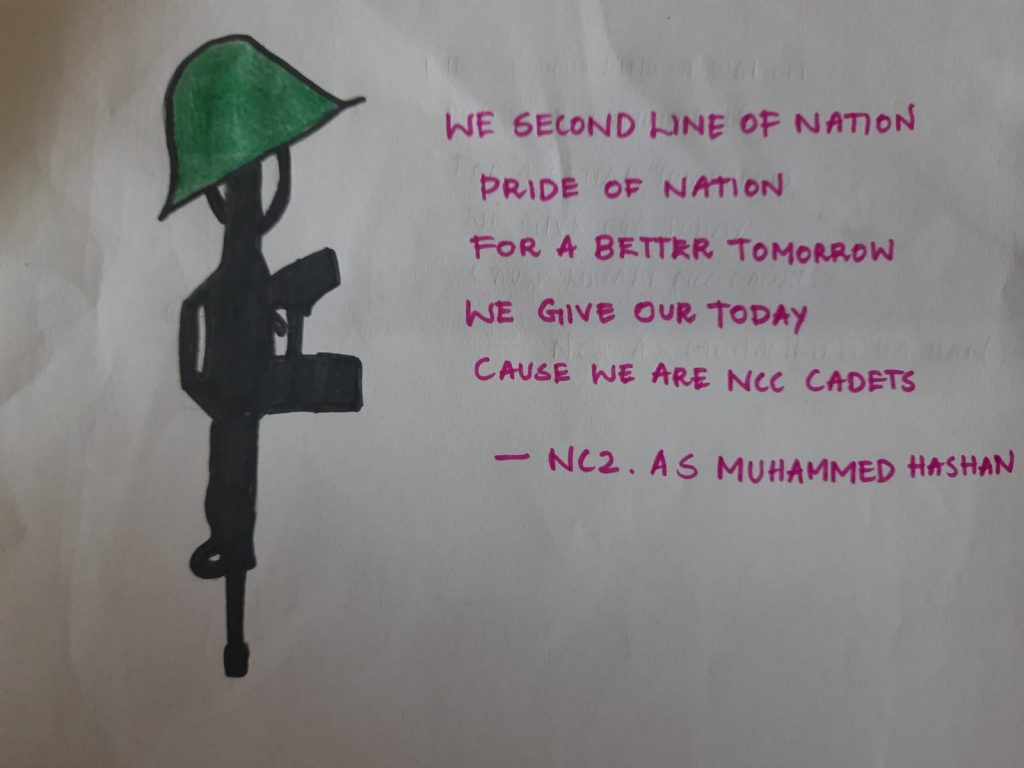 WE SECOND LINE OF NATION
PRIDE OF NATION
FOR A BETTER TOMORROW
WE GIVE OUR TODAY
CAUSE WE ARE NCC CADETS
— NC2. AS MUHAMMED HASHAN